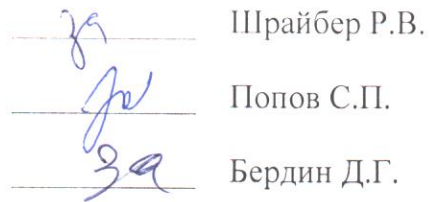 за Шрайбер Р.В.
за Попов С.П.
за Бердин Д.Г.